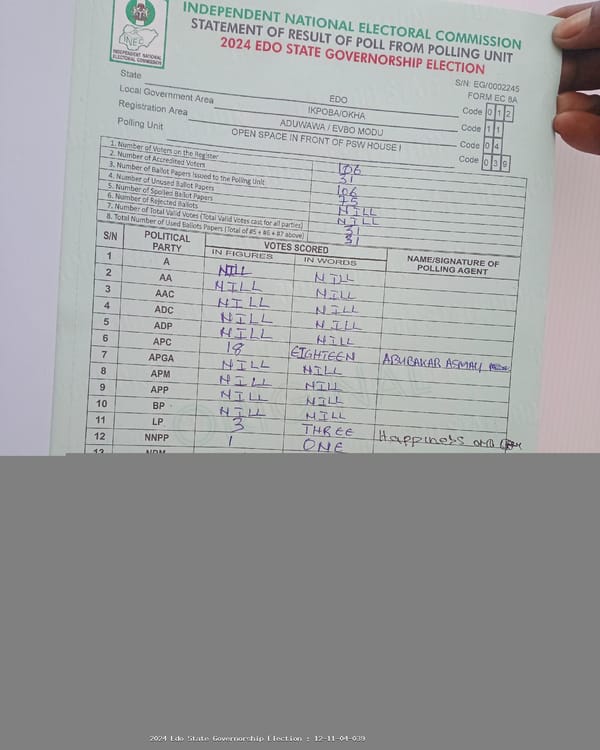 INEC
INDEPENDENT NATIONAL
ELECTORAL COMMISSION
INDEPENDENT NATIONAL ELECTORAL COMMISSION
STATEMENT OF RESULT OF POLL FROM POLLING UNIT
2024 EDO STATE GOVERNORSHIP ELECTION
S/N: EG/0002245
FORM EC 8A
State EDO Code 0 1 2
Local Government Area IKPOBA/OKHA Code 1 1
Registration Area ADUWAWA / EVBO MODU Code 0 4
Polling Unit OPEN SPACE IN FRONT OF PSW HOUSE I Code 0 3 9
1. Number of Voters on the Register 106
2. Number of Accredited Voters 31
3. Number of Ballot Papers Issued to the Polling Unit 106
4. Number of Unused Ballot Papers 75
5. Number of Spoiled Ballot Papers NILL
6. Number of Rejected Ballots NILL
7. Number of Total Valid Votes (Total Valid Votes cast for all parties) 31
8. Total Number of Used Ballots Papers (Total of #5 + #6 + #7 above) 31
S/N POLITICAL PARTY VOTES SCORED NAME/SIGNATURE OF POLLING AGENT
IN FIGURES IN WORDS
1 A NILL NILL
2 AA NILL NILL
3 AAC NILL NILL
4 ADC NILL NILL
5 ADP NILL NILL
6 APC 18 EIGHTEEN ABUBAKAR ASMAU
7 APGA NILL NILL
8 APM NILL NILL
9 APP NILL NILL
10 BP NILL NILL
11 LP 3 THREE Happiness
12 NNPP 1 ONE
2024 Edo State Governorship Election : 12-11-04-039